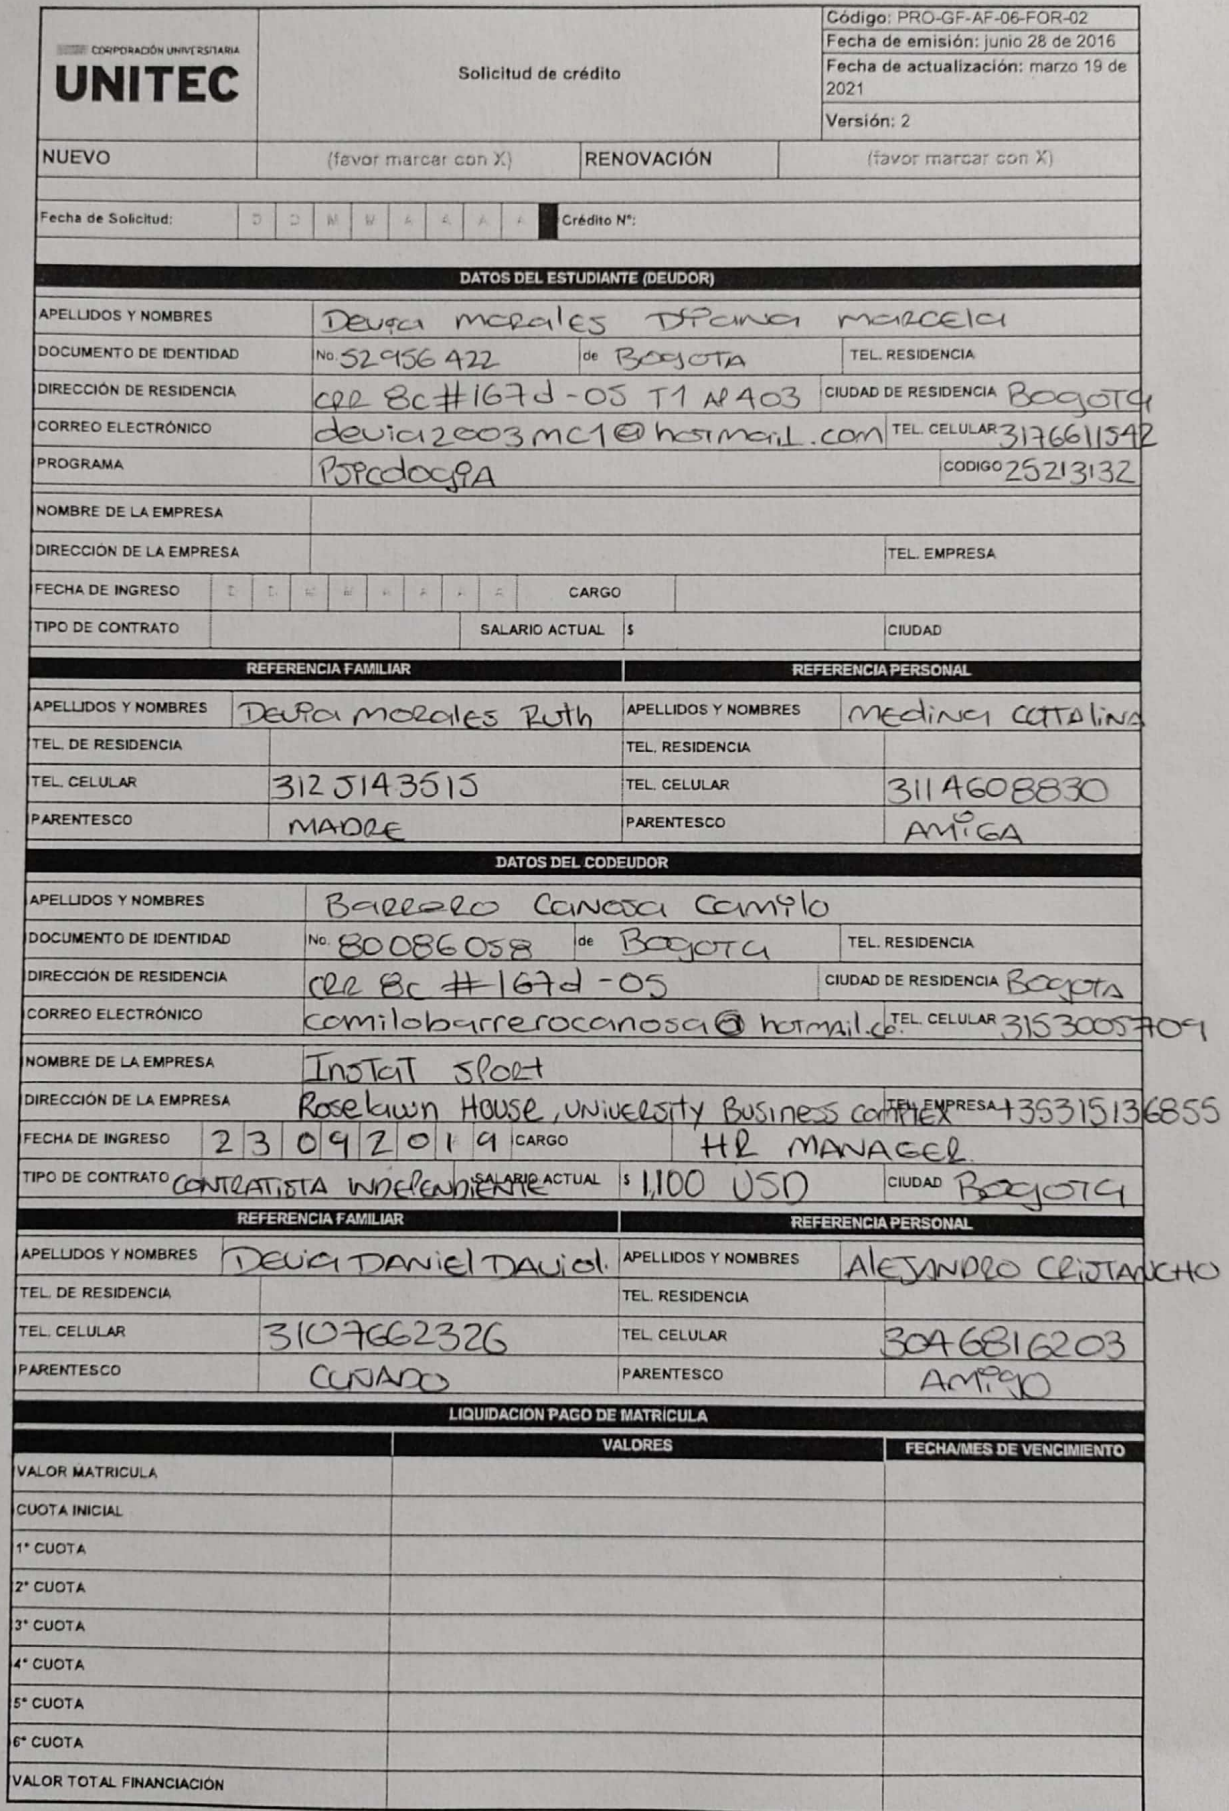 CORPORACIÓN UNIVERSITARIA
UNITEC
Solicitud de crédito
Código: PRO-GF-AF-06-FOR-02
Fecha de emisión: junio 28 de 2016
Fecha de actualización: marzo 19 de
2021
Versión: 2
NUEVO (favor marcar con X) RENOVACIÓN (favor marcar con X)
Fecha de Solicitud: D D M M A A A A Crédito N°:
DATOS DEL ESTUDIANTE (DEUDOR)
APELLIDOS Y NOMBRES Devia morales Diana marcela
DOCUMENTO DE IDENTIDAD No. 52956422 de BOGOTA TEL. RESIDENCIA
DIRECCIÓN DE RESIDENCIA CRR 8c #167d-05 T1 AP 403 CIUDAD DE RESIDENCIA Bogota
CORREO ELECTRÓNICO devia2003mc1@hotmail.com TEL. CELULAR 3176611542
PROGRAMA PsicologiA CODIGO 25213132
NOMBRE DE LA EMPRESA
DIRECCIÓN DE LA EMPRESA TEL. EMPRESA
FECHA DE INGRESO D D M M A A A A CARGO
TIPO DE CONTRATO SALARIO ACTUAL $ CIUDAD
REFERENCIA FAMILIAR REFERENCIA PERSONAL
APELLIDOS Y NOMBRES Devia morales Ruth APELLIDOS Y NOMBRES Medina CATTALINA
TEL. DE RESIDENCIA TEL. RESIDENCIA
TEL. CELULAR 3125143515 TEL. CELULAR 3114608830
PARENTESCO MADRE PARENTESCO AMiGA
DATOS DEL CODEUDOR
APELLIDOS Y NOMBRES Barrero Canosa Camilo
DOCUMENTO DE IDENTIDAD No. 80086058 de Bogota TEL. RESIDENCIA
DIRECCIÓN DE RESIDENCIA CRR 8c #167d-05 CIUDAD DE RESIDENCIA Bogota
CORREO ELECTRÓNICO camilobarrerocanosa@hotmail.co. TEL. CELULAR 3153005709
NOMBRE DE LA EMPRESA Instat sport
DIRECCIÓN DE LA EMPRESA Roselawn House, University Business complex TEL. EMPRESA +35315136855
FECHA DE INGRESO 23092019 CARGO HR MANAGER
TIPO DE CONTRATO CONTRATISTA INDEPENDIENTE SALARIO ACTUAL $ 1,100 USD CIUDAD Bogota
REFERENCIA FAMILIAR REFERENCIA PERSONAL
APELLIDOS Y NOMBRES Devia DANiel DAviol. APELLIDOS Y NOMBRES AlEJANDRO CRiSTANCHO
TEL. DE RESIDENCIA TEL. RESIDENCIA
TEL. CELULAR 3107662326 TEL. CELULAR 3046816203
PARENTESCO CUÑADO PARENTESCO AMigO
LIQUIDACION PAGO DE MATRÍCULA
VALORES FECHA/MES DE VENCIMIENTO
VALOR MATRICULA
CUOTA INICIAL
1° CUOTA
2° CUOTA
3° CUOTA
4° CUOTA
5° CUOTA
6° CUOTA
VALOR TOTAL FINANCIACIÓN